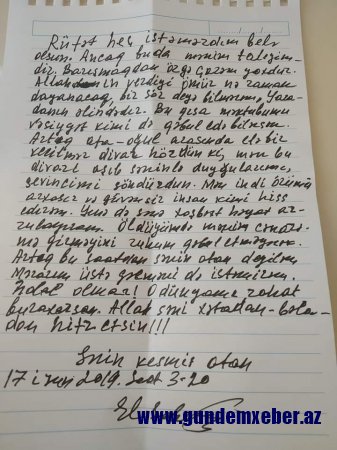 Rüfət heç istəməzdim belə
olsun. Ancaq buda mənim taleyim-
dir. Barışmaqdan özgə çarəm yoxdur.
Allahın verdiyi ömür nə zaman
dayanacaq bir söz deyə bilmirəm, Yara-
danın əlindədir. Bu qısa məktubumu
vəsiyyət kimi də qəbul edə bilərsən.
Artıq ata-oğul arasında elə bir
divar hördün ki, mən bu
divarı aşıb səninlə duyğularımı,
sevincimi söndürdün. Mən indi özümü
arxasız və görünməz insan kimi hiss
edirəm. Yenə də sənə xoşbəxt həyat ar-
zulayıram. Öldüyümdə mənim cənazə-
mə girməyini ruhum qəbul etməyəcək.
Artıq bu saatdan sənin atan deyiləm
Məzarım üstə gəlməni də istəmirəm.
Halal olmaz! O dünyama rahat
buraxarsan. Allah səni xətadan-bəla-
dan hifz etsin!!!
Sənin keçmiş atan
17 iyun 2019. Saat 3-20
www.gundemxeber.az